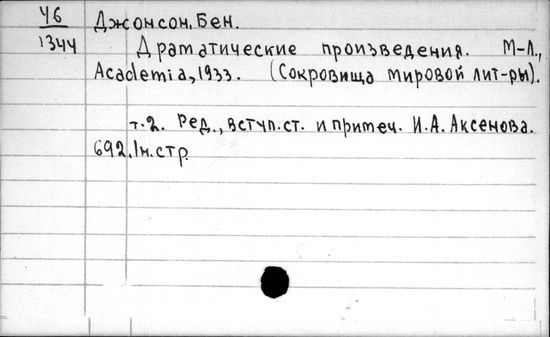 Ч6 Джонсон, Бен.
1344 Драматические произведения. М-Л.,
Academia, 1933. (Сокровища мировой лит-ры).
т.2. Ред., вступ.ст. и примеч. И.А.Аксенова.
692. 1н.стр.